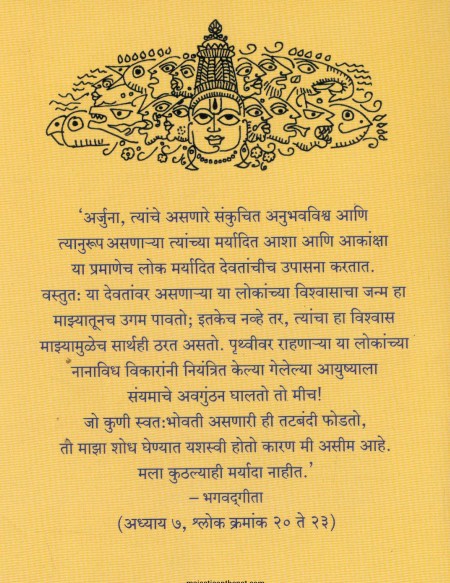 ‘अर्जुना, त्यांचे असणारे संकुचित अनुभवविश्व आणि
त्यानुरूप असणाऱ्या त्यांच्या मर्यादित आशा आणि आकांक्षा
या प्रमाणेच लोक मर्यादित देवतांचीच उपासना करतात.
वस्तुतः या देवतांवर असणाऱ्या या लोकांच्या विश्वासाचा जन्म हा
माझ्यातूनच उगम पावतो; इतकेच नव्हे तर, त्यांचा हा विश्वास
माझ्यामुळेच सार्थही ठरत असतो. पृथ्वीवर राहणाऱ्या या लोकांच्या
नानाविध विकारांनी नियंत्रित केल्या गेलेल्या आयुष्याला
संयमाचे अवगुंठन घालतो तो मीच!
जो कुणी स्वतःभोवती असणारी ही तटबंदी फोडतो,
तो माझा शोध घेण्यात यशस्वी होतो कारण मी असीम आहे.
मला कुठल्याही मर्यादा नाहीत.’
– भगवद्‌गीता
(अध्याय ७, श्लोक क्रमांक २० ते २३)